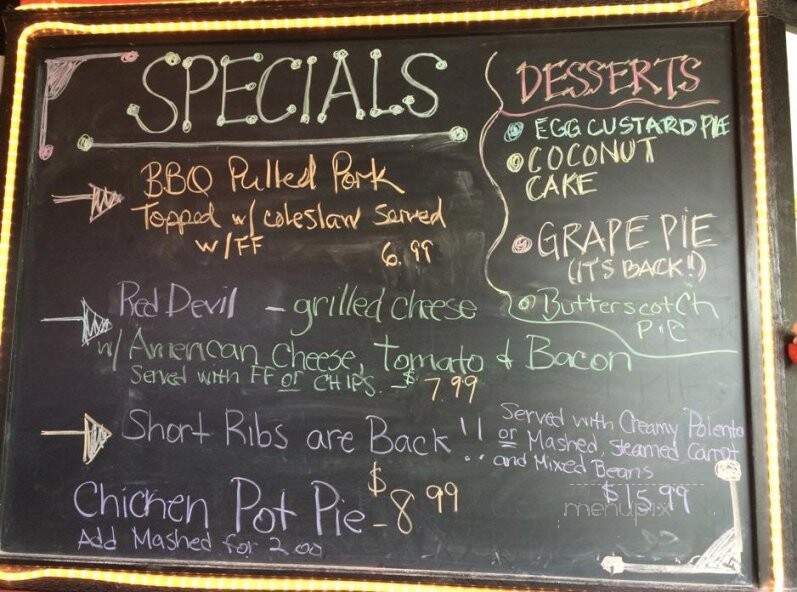 SPECIALS
BBQ Pulled Pork
Topped w/ coleslaw Served
w/FF 6.99
Red Devil - grilled cheese
w/ American cheese, Tomato & Bacon
Served with FF or CHIPS - $7.99
Short Ribs are Back!!
Served with Creamy Polenta
or Mashed, Steamed Carrot
and Mixed Beans
$15.99
Chicken Pot Pie - $8.99
Add Mashed for 2.00
DESSERTS
EGG CUSTARD PIE
COCONUT
CAKE
GRAPE PIE
(IT'S BACK!)
ButterscotCh
PIE
menupix